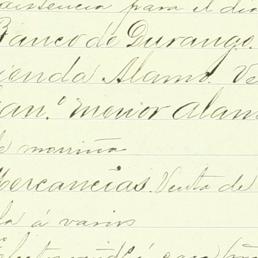 para el dia
Banco de Durango.
ienda Alamo. Ve
an.º menor Alam
de morriña
Mercancias. Venta de
la á varios